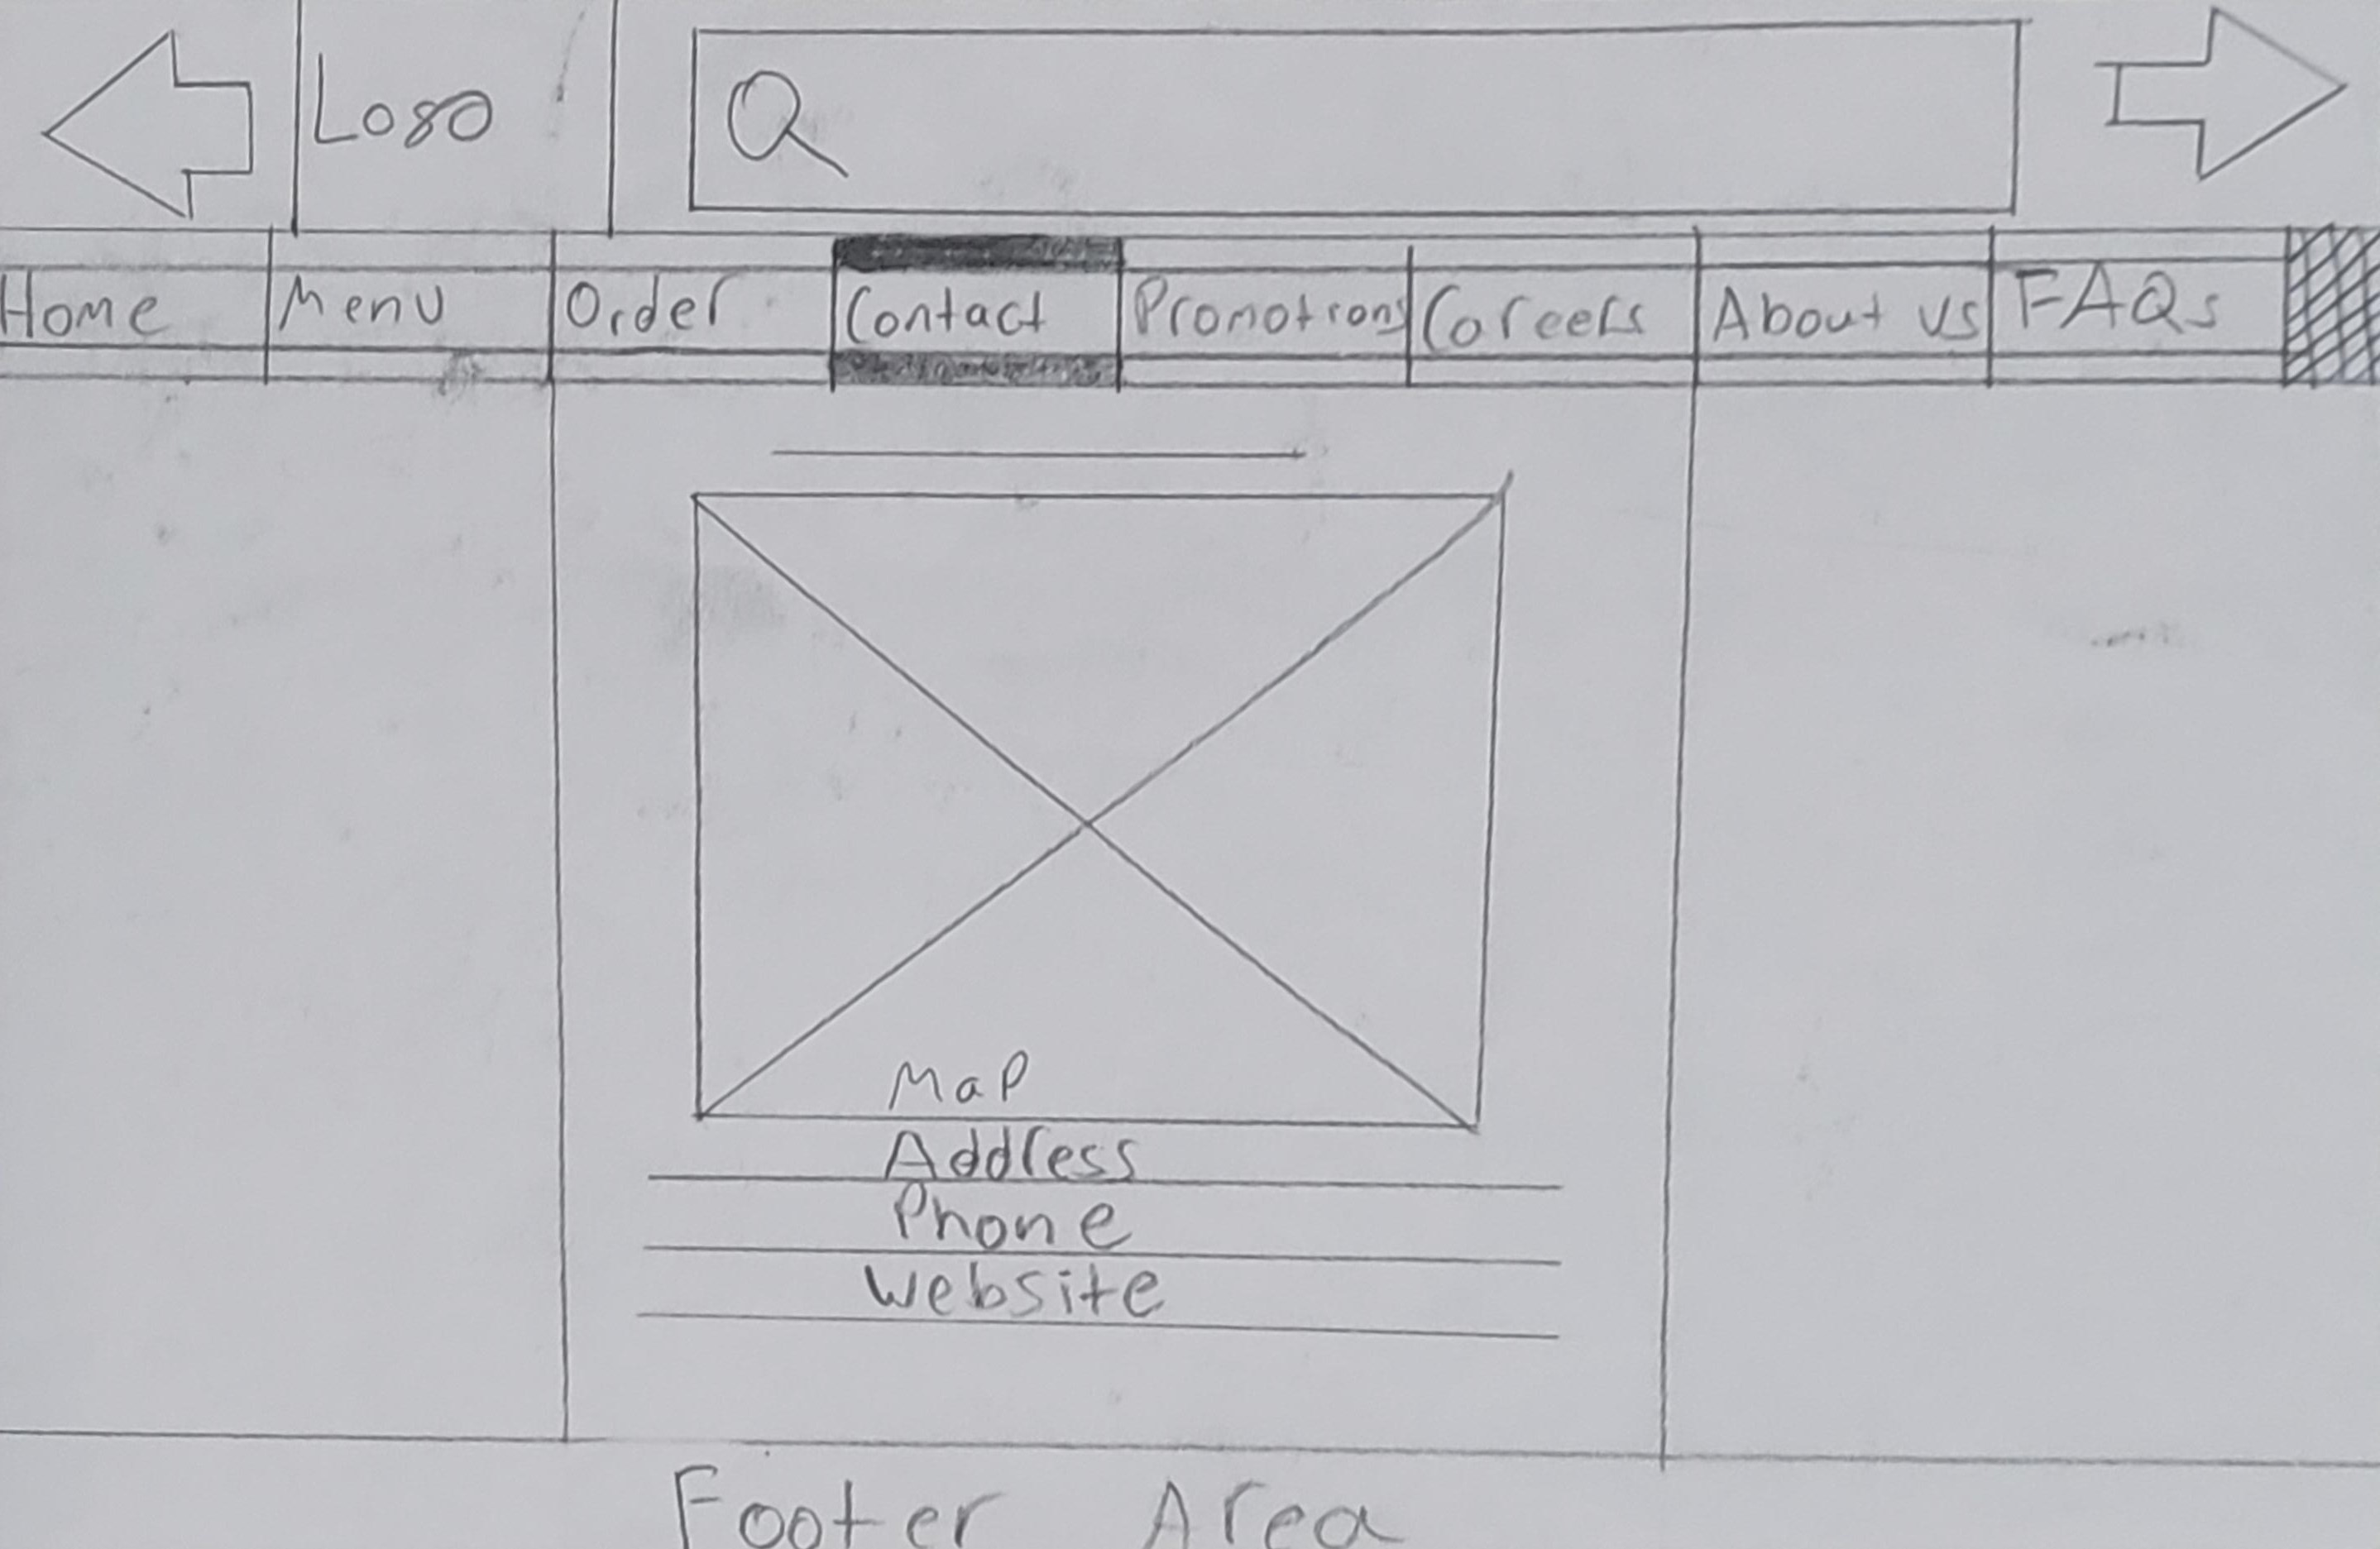 Logo
Home Menu Order Contact Promotions Careers About us FAQs
Map
Address
Phone
Website
Footer Area